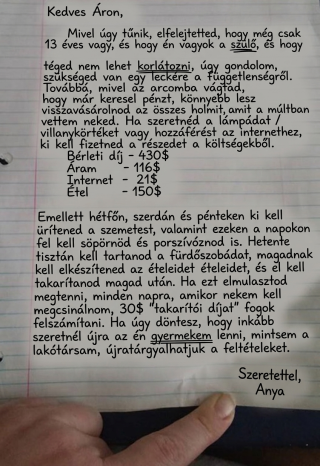 Kedves Áron,
Mivel úgy tűnik, elfelejtetted, hogy még csak
13 éves vagy, és hogy én vagyok a szülő, és hogy
téged nem lehet korlátozni, úgy gondolom,
szükséged van egy leckére a függetlenségről.
Továbbá, mivel az arcomba vágtad,
hogy már keresel pénzt, könnyebb lesz
visszavásárolnod az összes holmit, amit a múltban
vettem neked. Ha szeretnéd a lámpádat /
villanykörtéket vagy hozzáférést az internethez,
ki kell fizetned a részedet a költségekből.
Bérleti díj – 430$
Áram – 116$
Internet – 21$
Étel – 150$
Emellett hétfőn, szerdán és pénteken ki kell
ürítened a szemetest, valamint ezeken a napokon
fel kell söpörnöd és porszívóznod is. Hetente
tisztán kell tartanod a fürdőszobádat, magadnak
kell elkészítened az ételeidet ételeidet, és el kell
takarítanod magad után. Ha ezt elmulasztod
megtenni, minden napra, amikor nekem kell
megcsinálnom, 30$ "takarítói díjat" fogok
felszámítani. Ha úgy döntesz, hogy inkább
szeretnél újra az én gyermekem lenni, mintsem a
lakótársam, újratárgyalhatjuk a feltételeket.
Szeretettel,
Anya